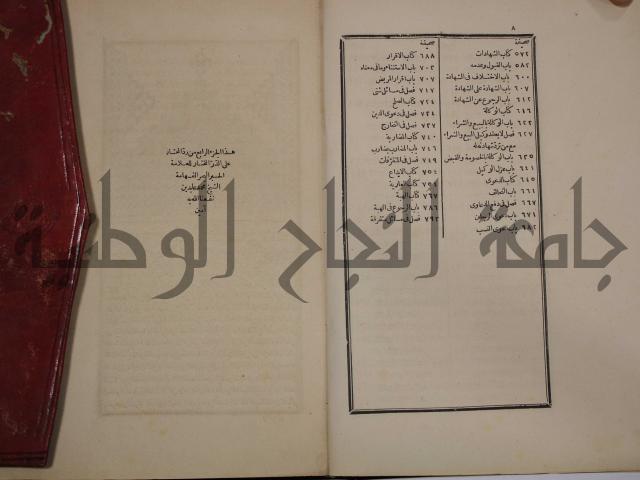 ٨
صحيفة
٥٧٢ كتاب الشهادات
٥٨٢ باب القبول وعدمه
٦٠٠ باب الاختلاف فى الشهادة
٦٠٧ باب الشهادة على الشهادة
٦١٢ باب الرجوع عن الشهادة
٦١٦ كتاب الوكالة
٦٢٢ باب الوكالة بالبيع والشراء
٦٢٧ فصل لا يعقد وكيل البيع والشراء
مع من ترد شهادته له
٦٣٥ باب الوكالة بالخصومة والقبض
٦٤١ باب عزل الوكيل
٦٤٥ كتاب الدعوى
٦٦١ باب التحالف
٦٦٧ فصل فى دفع الدعاوى
٦٧١ باب دعوى الرجلين
٦٨٢ باب دعوى النسب
صحيفة
٦٨٨ كتاب الاقرار
٧٠٣ باب الاستثناء وما فى معناه
٧٠٧ باب اقرار المريض
٧١٧ فصل فى مسائل شتى
٧٢٤ كتاب الصلح
٧٣١ فصل فى دعوى الدين
٧٣٤ فصل فى التخارج
٧٤٠ كتاب المضاربة
٧٤٦ باب المضارب يضارب
٧٤٩ فصل فى المتفرقات
كتاب الايداع
كتاب العارية
كتاب الهبة
٧٨٦ باب الرجوع فى الهبة
٧٩٣ فصل فى مسائل متفرقة
هذا الجزء الرابع من رد المحتار
على الدر المختار للعلامة
الحبر البحر الفهامة
الشيخ محمد عابدين
نفعنا الله به
آمين
جامعة النجاح الوطنية